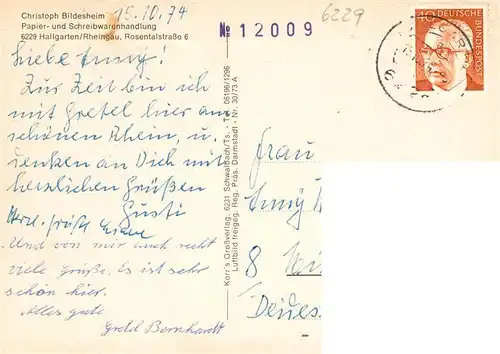 Christoph Bildesheim
Papier- und Schreibwarenhandlung
6229 Hallgarten/Rheingau, Rosentalstraße 6
15.10.74
№ 12009
6229
40 DEUTSCHE BUNDESPOST
Liebe Emmy!
Zur Zeit bin ich
mit Gretel hier am
schönen Rhein, u.
denken an Dich mit
herzlichen Grüßen
Gusti
Herzl. Grüße
Und von mir auch recht
viele Grüße. Es ist sehr
schön hier.
Alles gute
Gretel Bernhardt
Korr's Großverlag, 6231 Schwalbach/Ts. - Tel. 06196/1296
Luftbild freigeg. Reg. Präs. Darmstadt - Nr. 30/73 A
Frau
Emmy
8